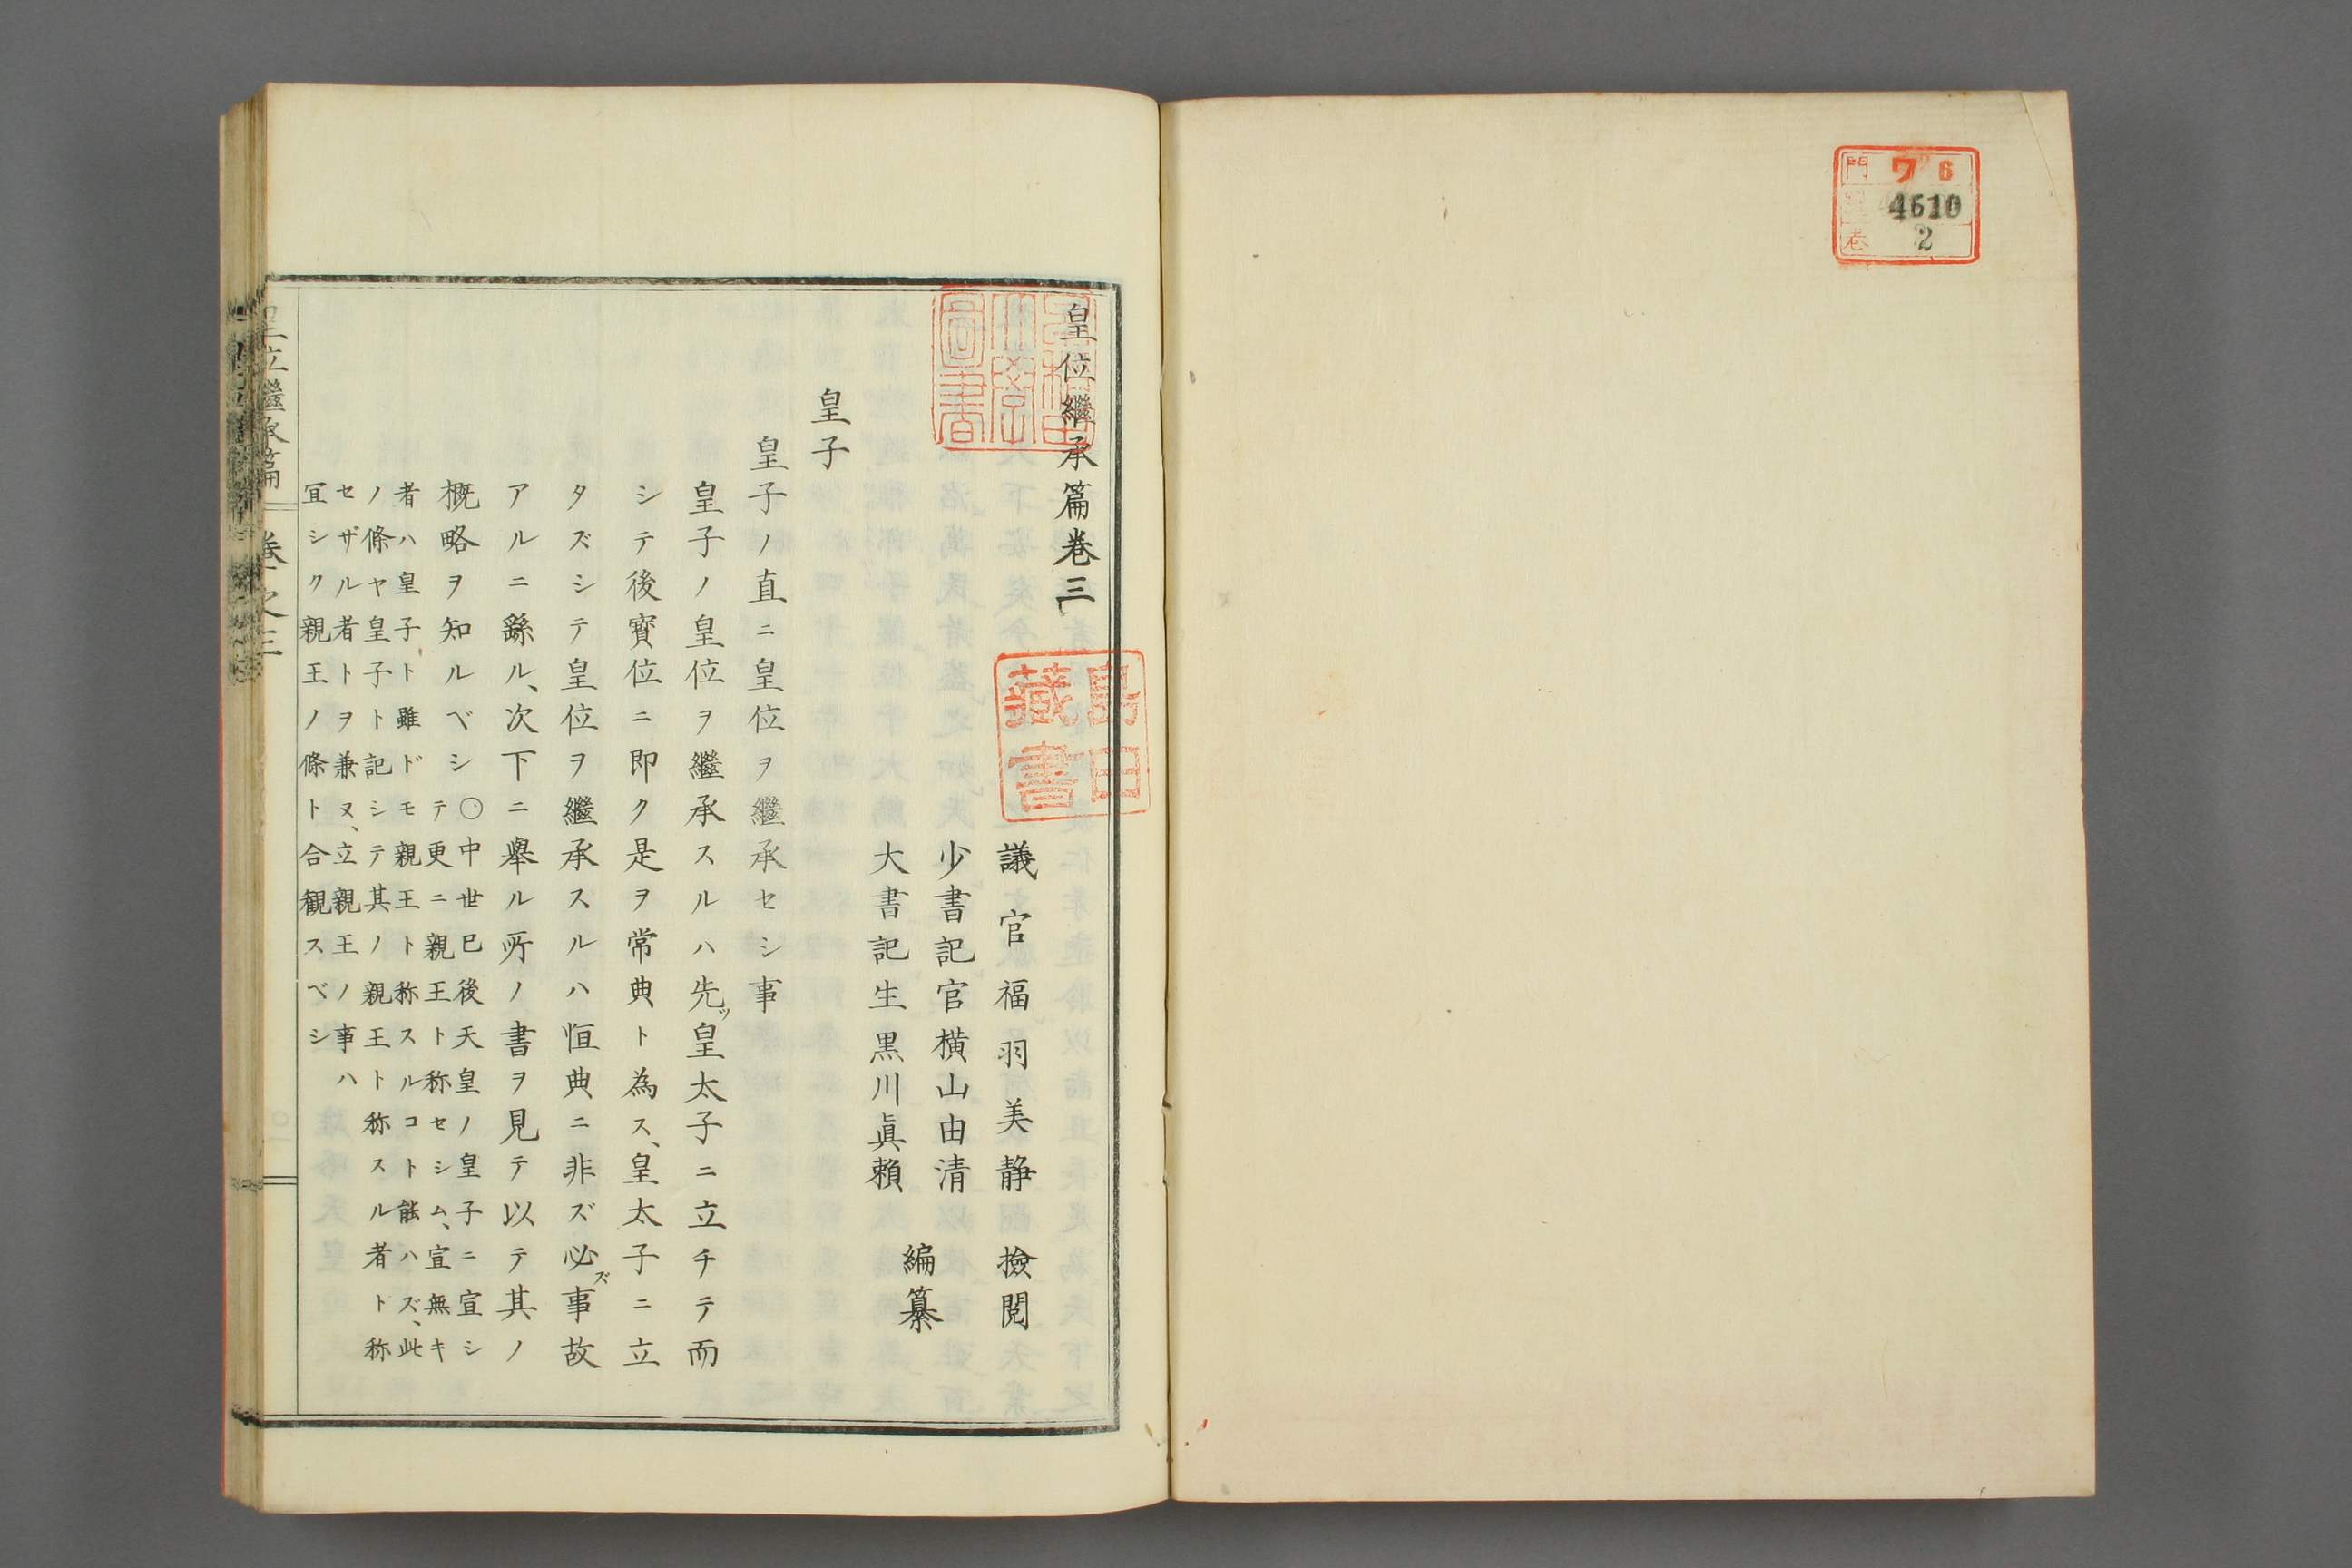 門 ワ 6
4610
巻 2
皇位繼承篇巻三
議官福羽美静 撿閲
少書記官横山由清
大書記生黒川眞頼
編纂
皇子
皇子ノ直ニ皇位ヲ繼承セシ事
皇子ノ皇位ヲ繼承スルハ先ッ皇太子ニ立チテ而
シテ後寳位ニ即ク是ヲ常典ト為ス、皇太子ニ立
タズシテ皇位ヲ繼承スルハ恒典ニ非ズ必ズ事故
アルニ繇ル、次下ニ舉ル所ノ書ヲ見テ以テ其ノ
概略ヲ知ルベシ〇中世已後天皇ノ皇子ニ宣シ
テ更ニ親王ト称セシム、宣無キ
者ハ皇子ト雖ドモ親王ト称スルコト能ハズ、此
ノ條ヤ皇子ト記シテ其ノ親王ト称スル者ト称
セザル者トヲ兼ヌ、立親王ノ事ハ
冝シク親王ノ條ト合観スベシ
皇位繼承篇 巻之三
早稲田大學圖書
島田藏書